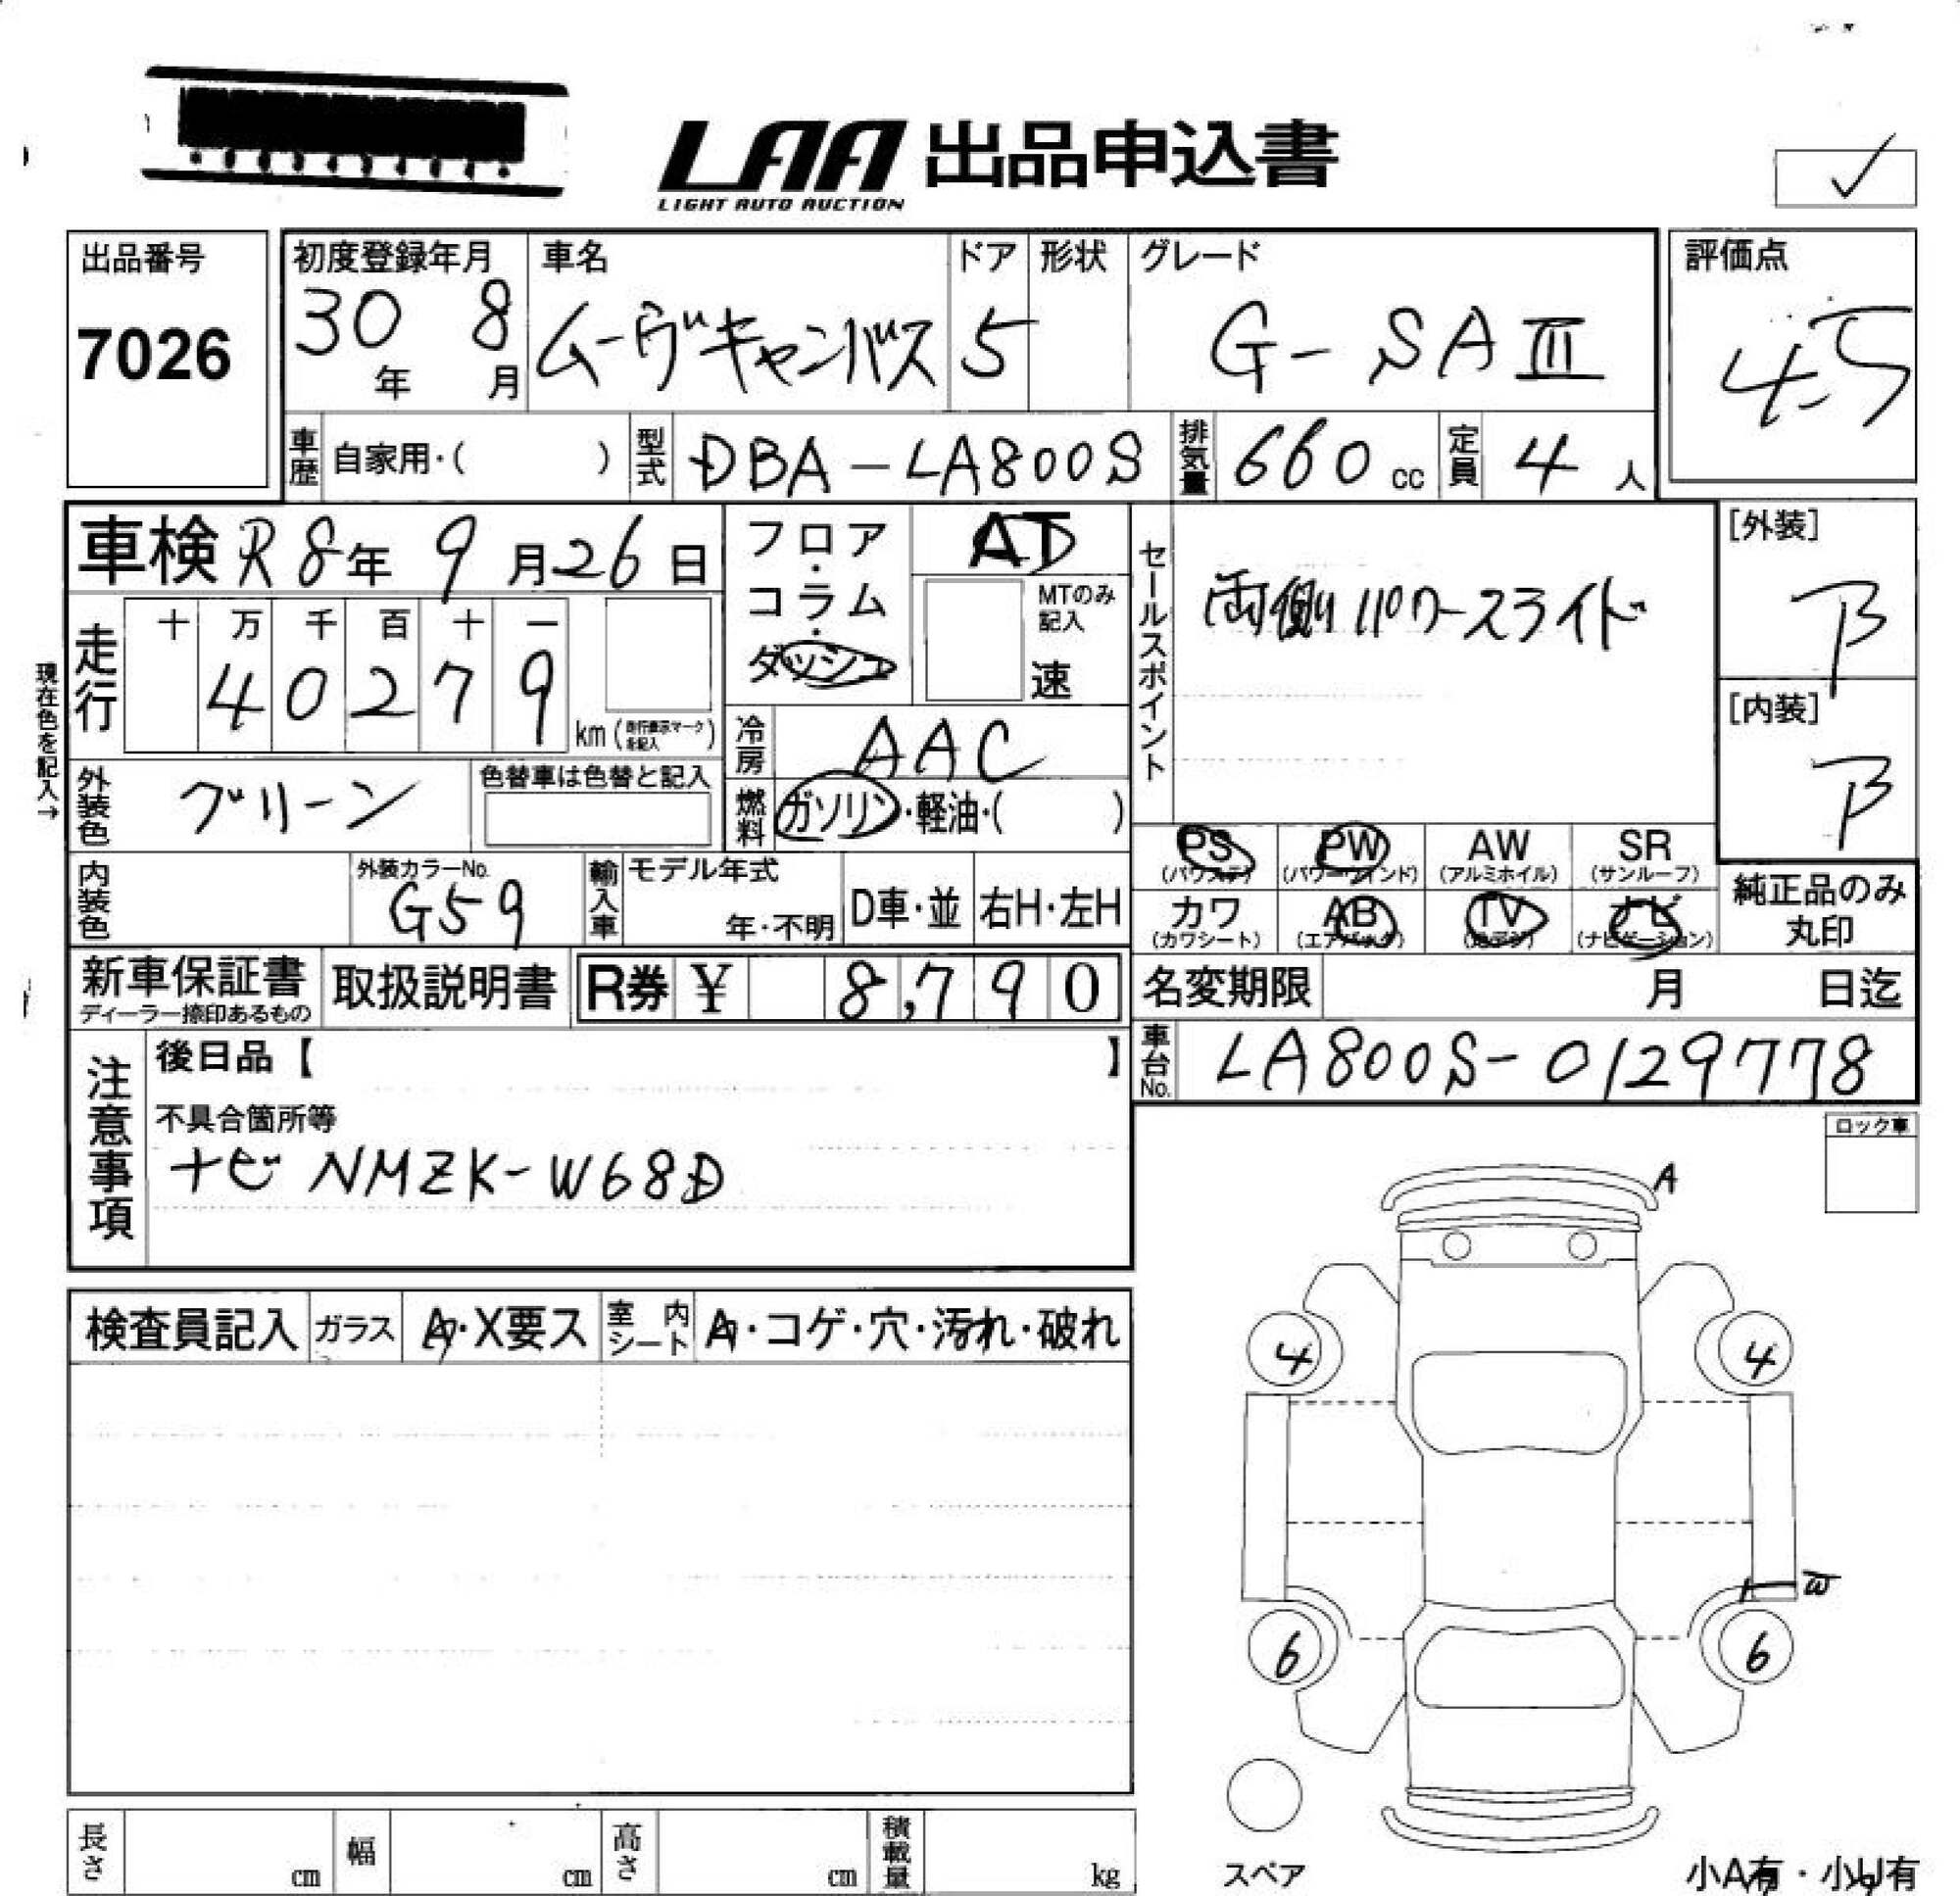 LAA 出品申込書
LIGHT AUTO AUCTION
✓
出品番号
7026
初度登録年月
30年 8月
車名
ムーヴキャンバス
ドア
5
形状
グレード
G-SAⅢ
評価点
4.5
車歴 自家用・( )
型式 DBA-LA800S
排気量 660cc
定員 4人
車検 R8年 9月26日
走行
十 万 千 百 十 一
4 0 2 7 9
km(走行表示マークを記入)
現在色を記入→
フロア・コラム・ダッシュ
AT
MTのみ記入
速
冷房 AAC
燃料 ガソリン・軽油・( )
セールスポイント
両側パワースライド
[外装]
B
[内装]
B
外装色 グリーン
色替車は色替と記入
内装色
外装カラーNo.
G59
輸入車
モデル年式
年・不明
D車・並
右H・左H
PS
(パワステ)
PW
(パワーウインド)
AW
(アルミホイル)
SR
(サンルーフ)
カワ
(カワシート)
AB
(エアバック)
TV
ナビ
(ナビゲーション)
純正品のみ
丸印
新車保証書
ディーラー捺印あるもの
取扱説明書
R券 ¥ 8,790
名変期限 月 日迄
車台No. LA800S-0129778
注意事項
後日品【 】
不具合箇所等
ナビ NMZK-W68D
ロック車
A
検査員記入
ガラス
A・X要ス
室内シート
A・コゲ・穴・汚れ・破れ
4
4
W
6
6
スペア
長さ cm
幅 cm
高さ cm
積載量 kg
小A有・小U有